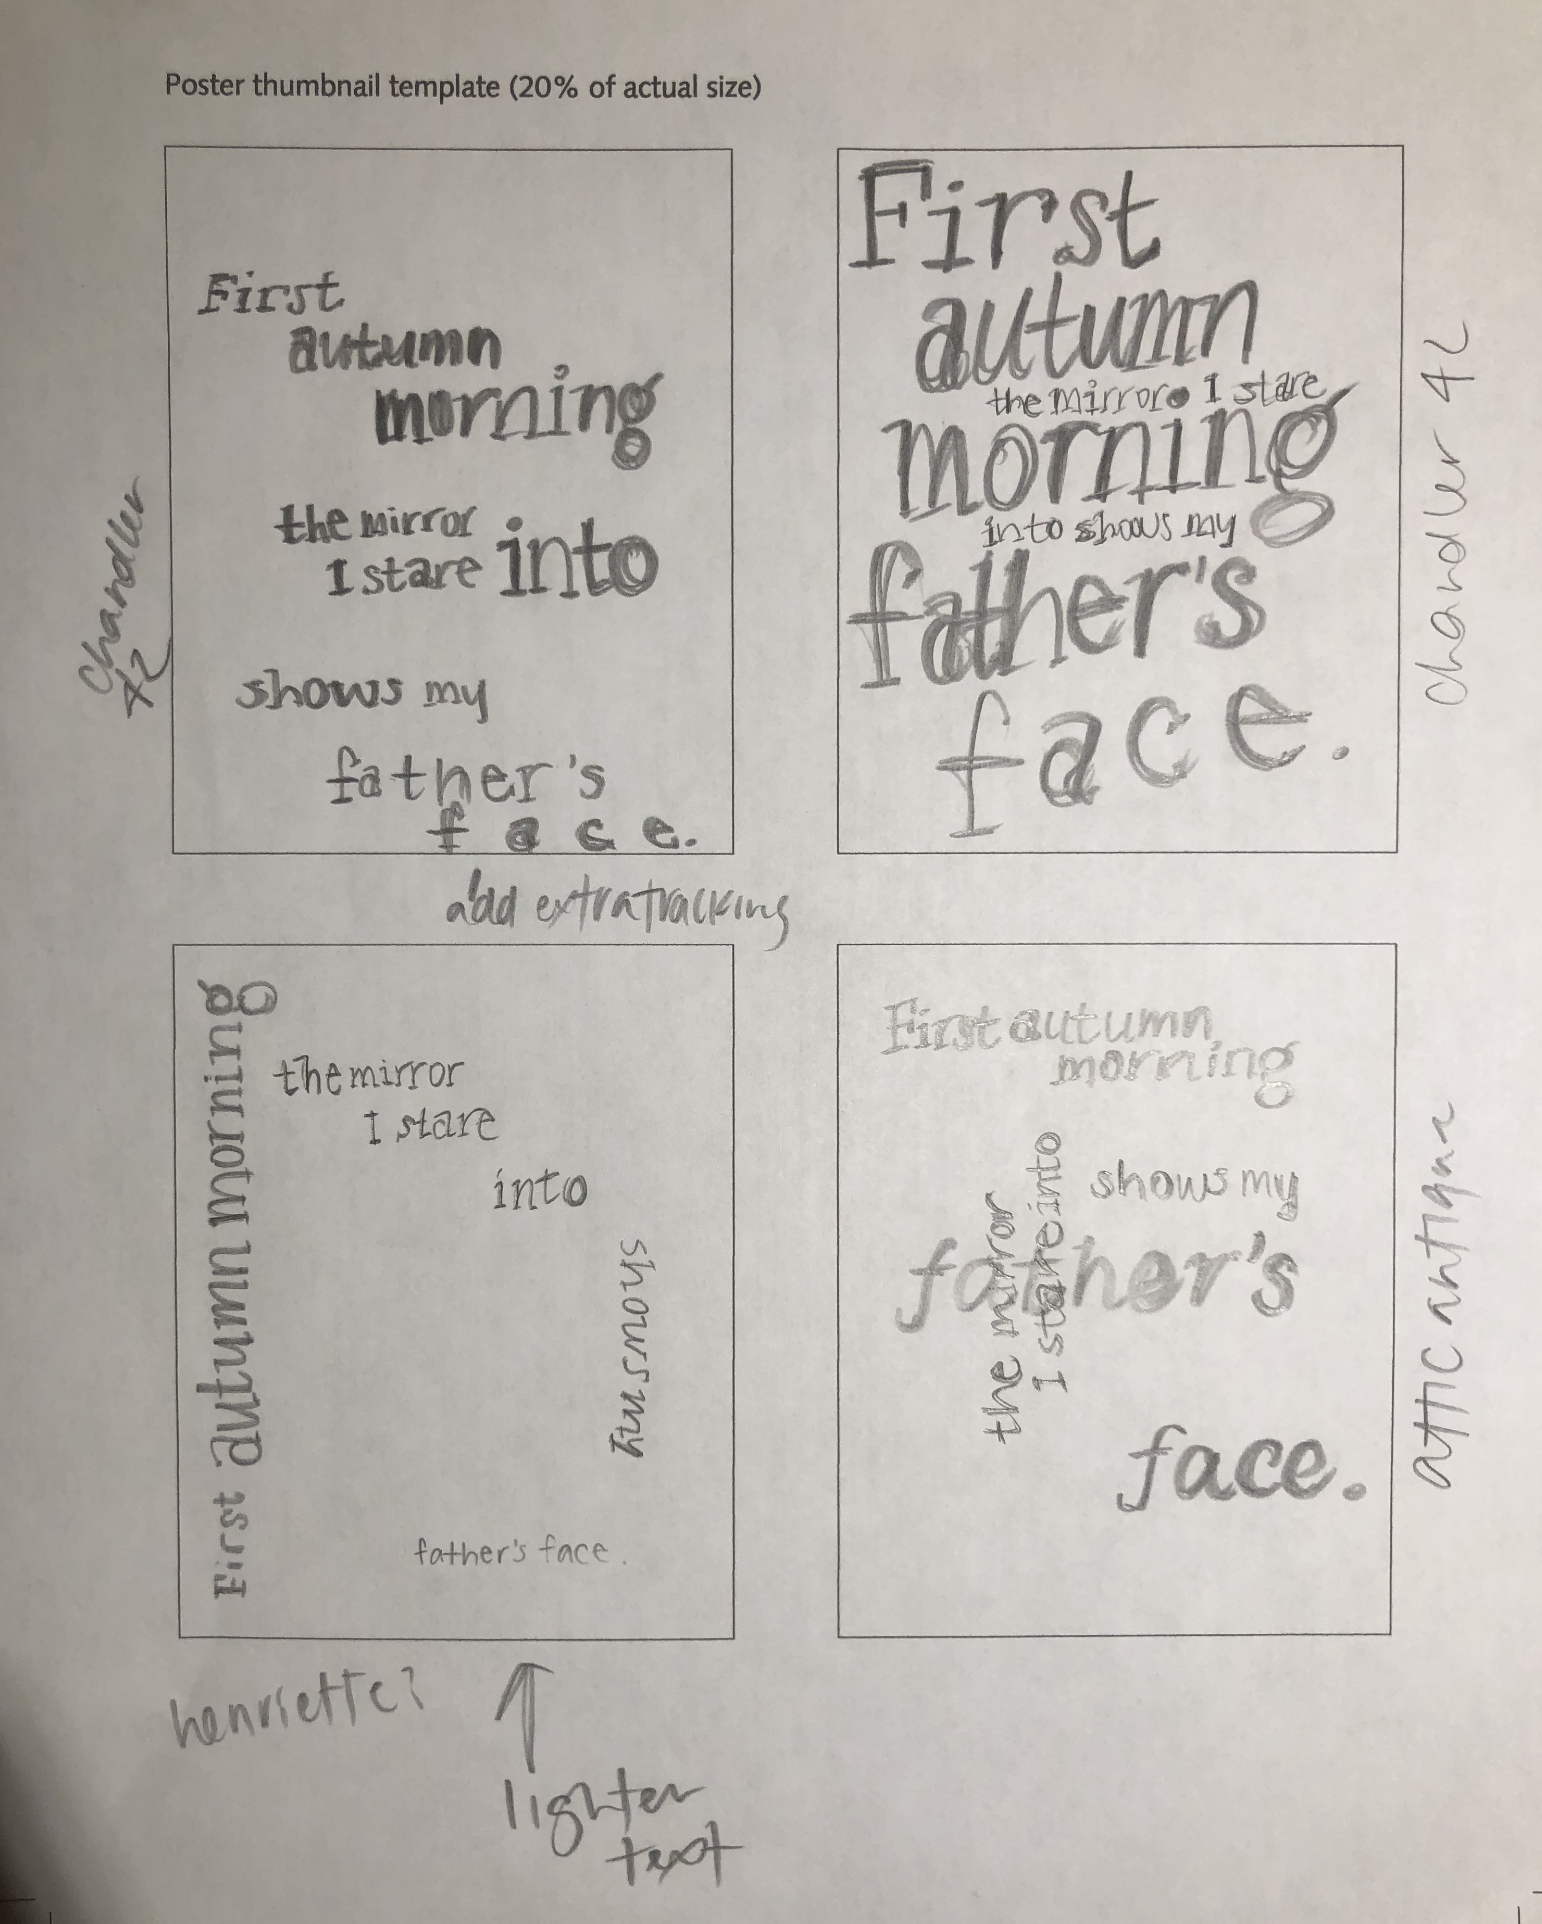 Poster thumbnail template (20% of actual size)
First
autumn
morning
the mirror
I stare into
shows my
father's
face.
Chandler
42
add extra tracking
First
autumn
the mirror I stare
morning
into shows my
father's
face.
Chandler 42
First autumn morning
the mirror
I stare
into
shows my
father's face.
henriette?
lighter
text
First autumn
morning
the mirror
I stare into
shows my
father's
face.
attic antique